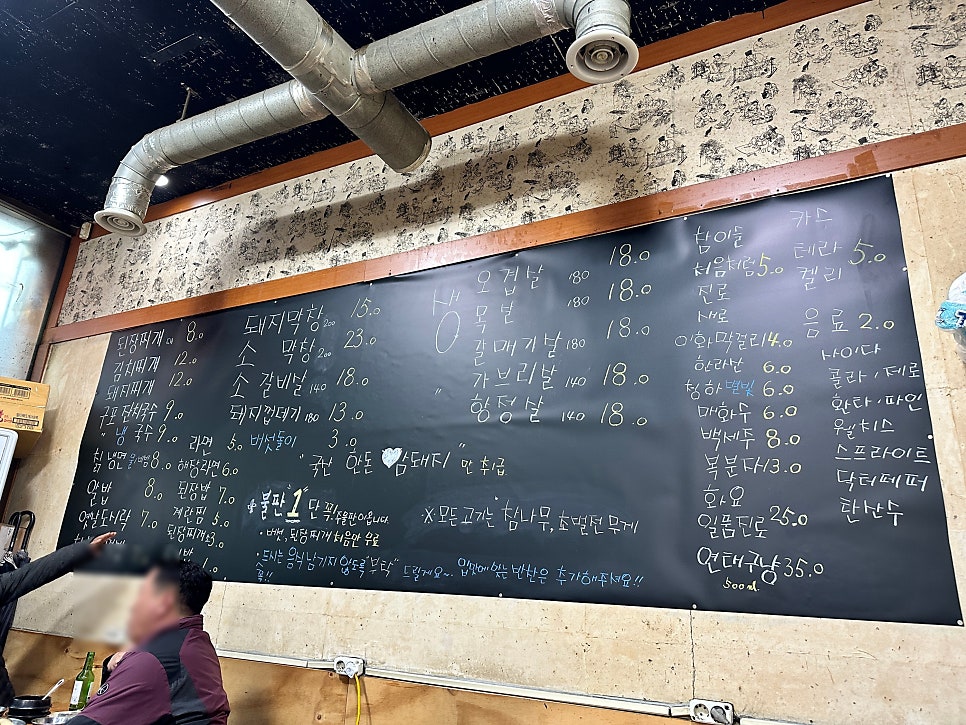 된장찌개 대 8.0
김치찌개 12.0
돼지찌개 12.0
구포 잔치국수 9.0
" 냉 국수 9.0
칡 냉면 물/비빔 8.0
알밥 8.0
옛날도시락 7.0
라면 5.0
해장라면 6.0
된장밥 7.0
계란찜 5.0
된장찌개 소 3.0
돼지막창 200 15.0
소 막창 200 23.0
소 갈비살 140 18.0
돼지껍데기 180 13.0
버섯돌이 3.0
생
오겹살 180 18.0
목살 180 18.0
갈매기살 180 18.0
" 가브리살 140 18.0
항정살 140 18.0
"국산 한돈 암돼지" 만 취급
불판 "1" 단 꼭, 주물만 아옵니다.
• 버섯, 된장찌개 처음만 무료
• 드시는 음식 남기지 않도록 "부탁" 드릴게요~ 입맛에 맞는 반찬은 추가해주세요!!
꼭!!
※ 모든고기는 참나무, 초벌전 무게
참이슬
처음처럼 5.0
진로
새로
이화막걸리 4.0
한라산 6.0
청하 별빛 6.0
매화수 6.0
백세주 8.0
복분자 13.0
화요
일품진로 25.0
연태구냥 35.0
500ml.
카스
테라 5.0
켈리
음료 2.0
사이다
콜라, 제로
환타, 파인
웰치스
스프라이트
닥터페퍼
탄산수